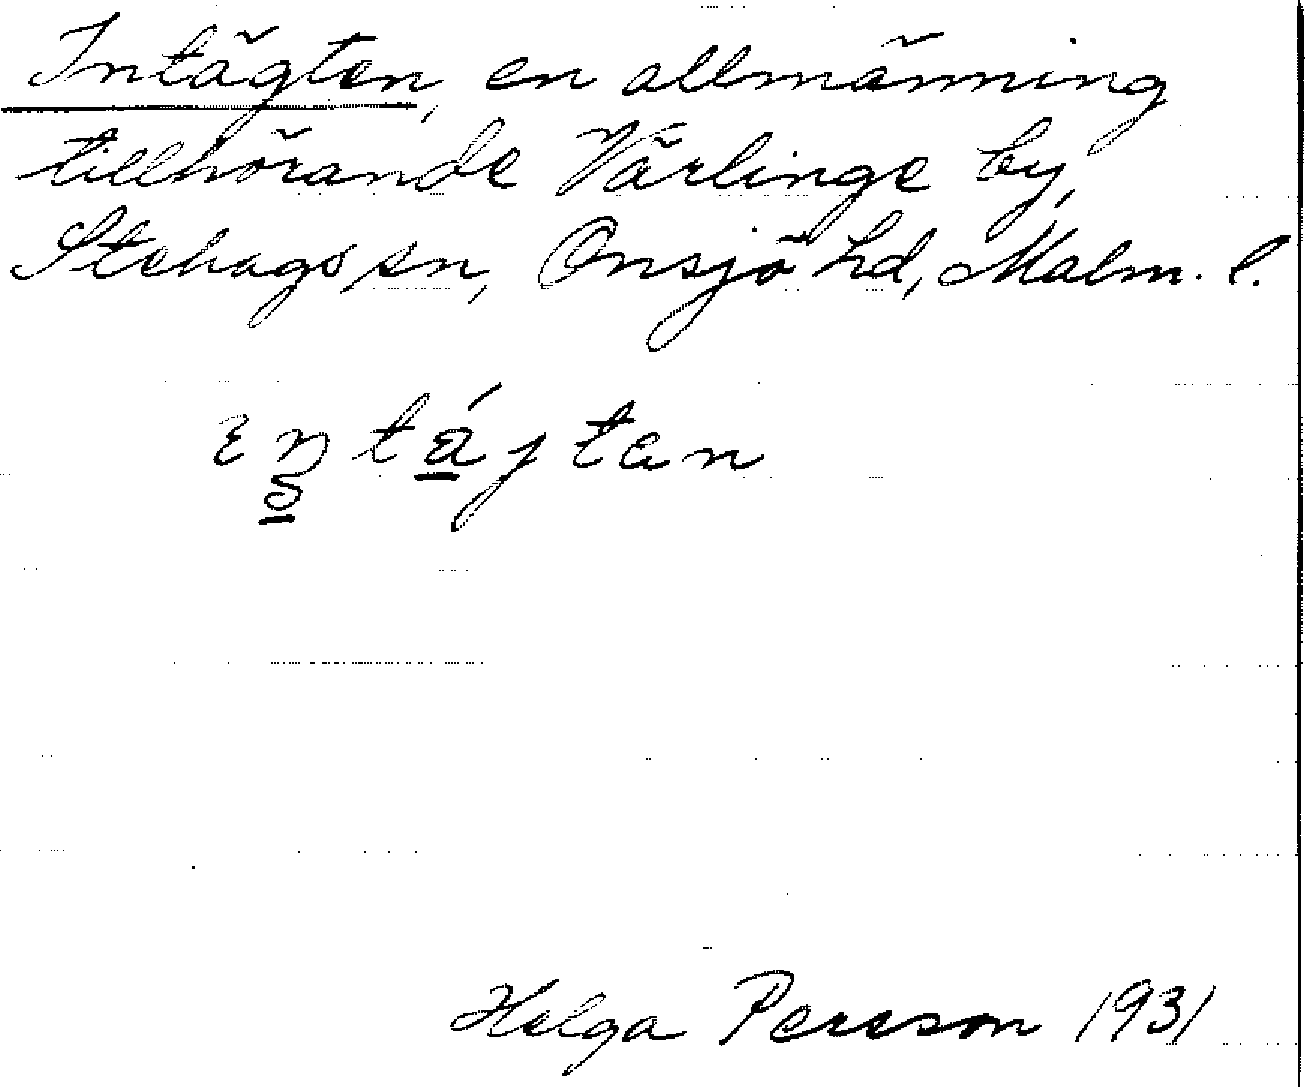 Intägten, en allmänning
tillhörande Värlinge by,
Stehags sn, Onsjö hd, Malm. l.
Helga Persson 1931